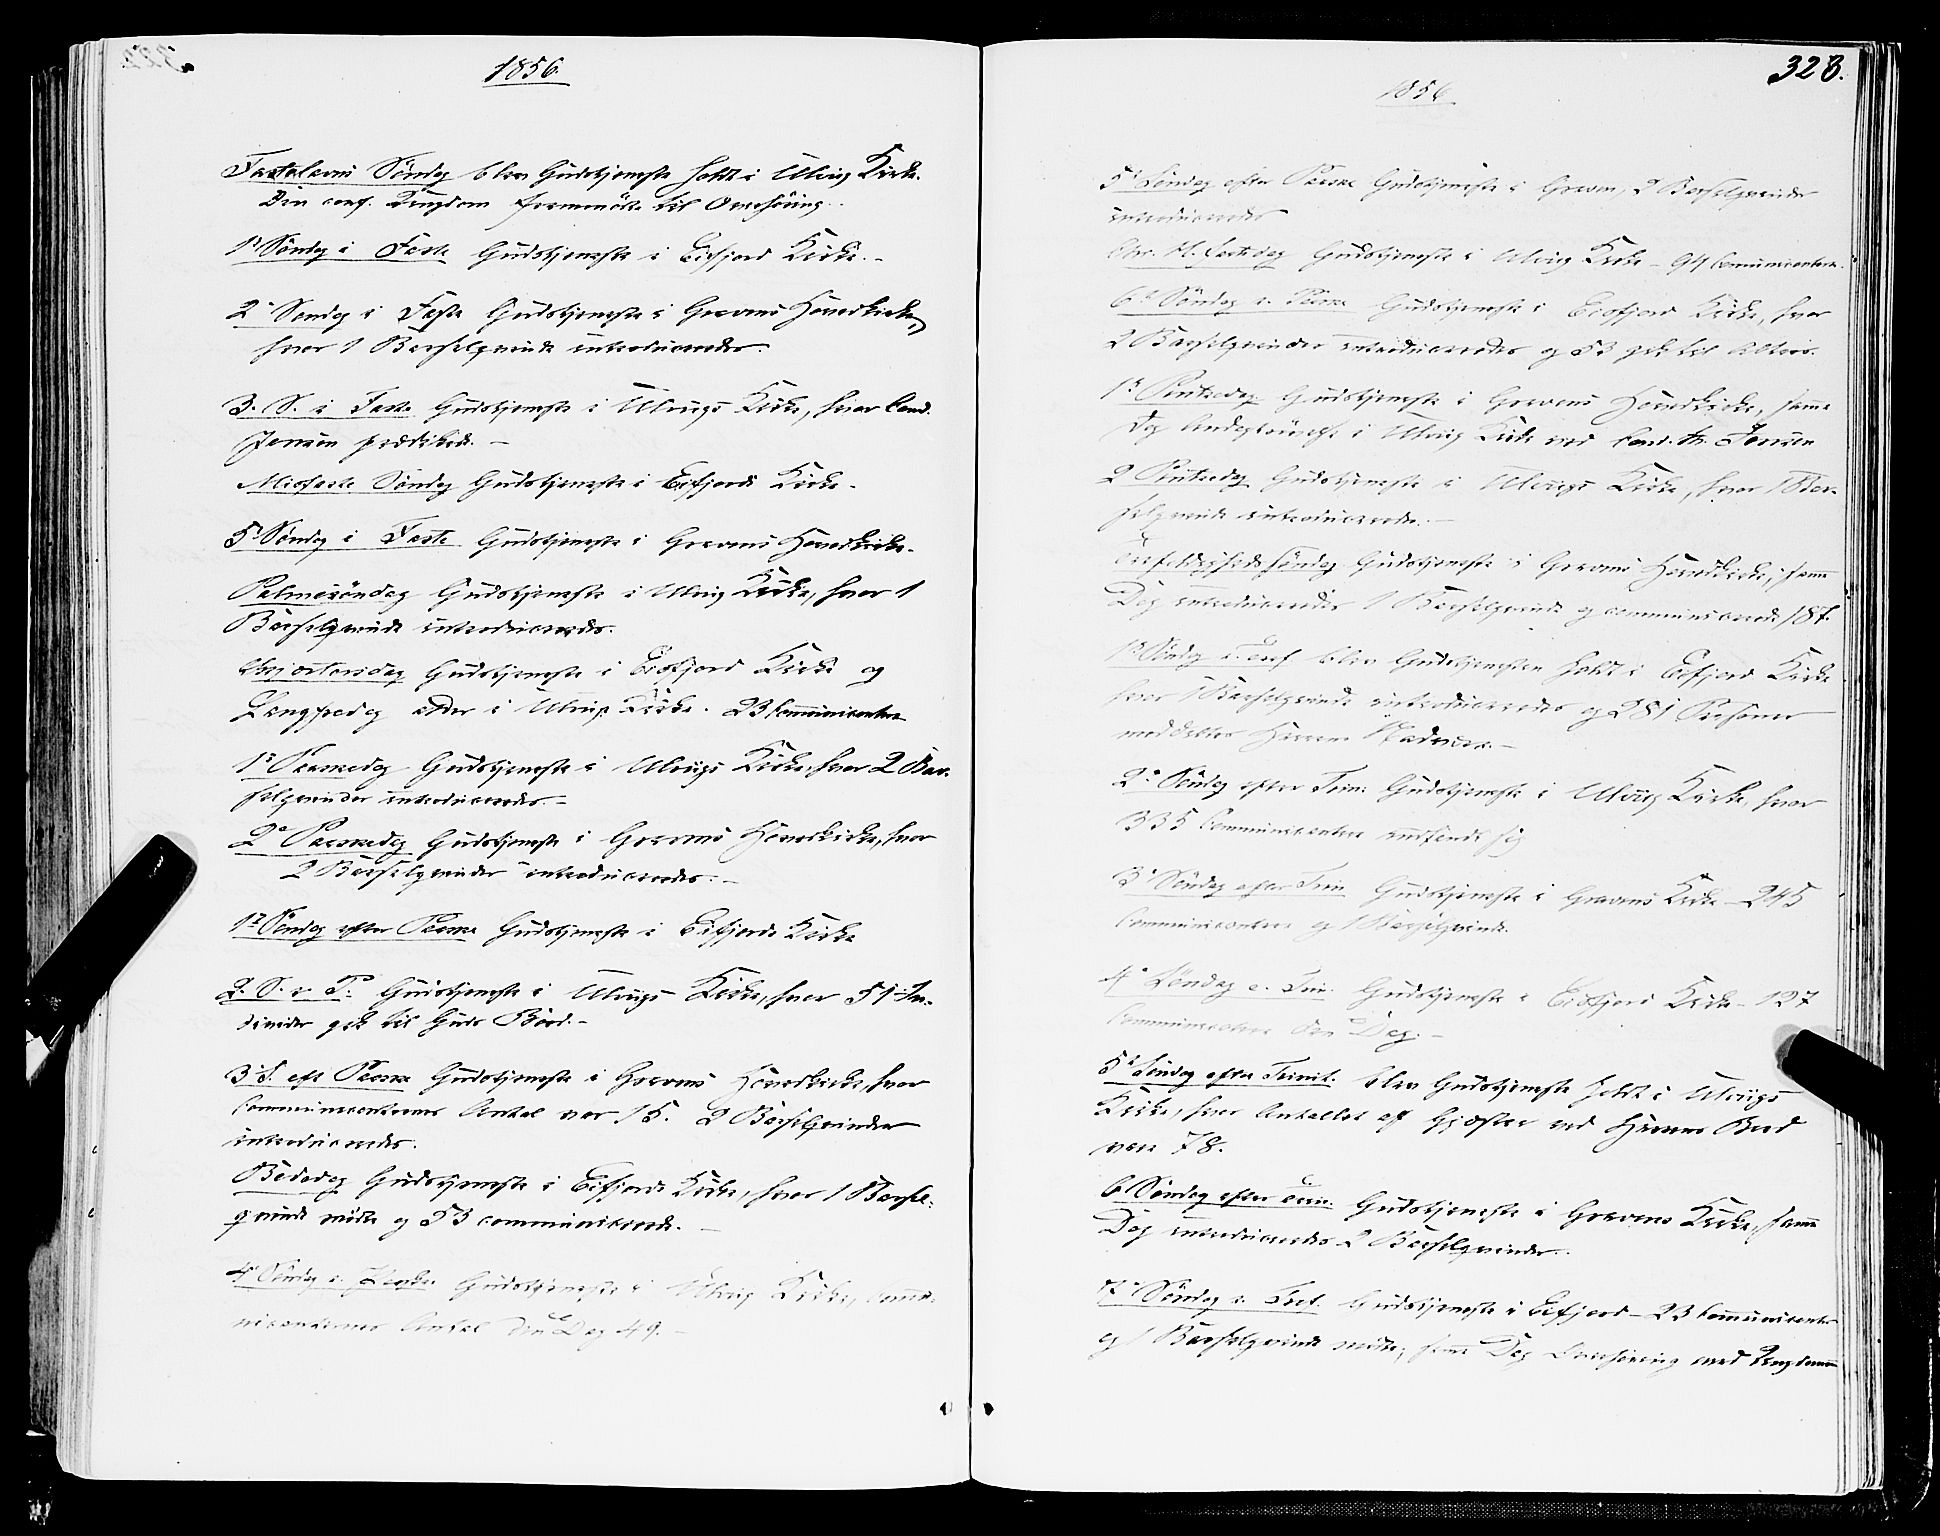 1856.
Fastelavns Søndag blev Gudstjeneste holdt i Ulvig Kirke.
Den conf. Ungdom fremmødte til Overhøring.
1ste Søndag i Faste Gudstjeneste i Eidfjord Kirke. -
2den Søndag i Faste Gudstjeneste i Gravens Hovedkirke,
hvor 1 Barselqvinde introduceredes.
3. S. i Faste Gudstjeneste i Ulvigs Kirke, hvor Cand.
Jensen prædikede. -
Midfaste Søndag Gudstjeneste i Eidfjords Kirke.
5te Søndag i Faste Gudstjeneste i Gravens Hovedkirke.
Palmesøndag Gudstjeneste i Ulvig Kirke, hvor 1
Barselqvinde introduceredes.
Skjærtorsdag Gudstjeneste i Eidfjord Kirke og
Langfredag i Ulvigs Kirke. 23 Communicantere
1ste Paaskedag Gudstjeneste i Ulvigs Kirke, hvor 2 Bar-
selqvinder introduceredes. -
2den Paaskedag Gudstjeneste i Gravens Hovedkirke, hvor
2 Barselqvinder introduceredes. -
1ste Søndag efter Paaske Gudstjeneste i Eidfjords Kirke
2. S. e. P. Gudstjeneste i Ulvigs Kirke, hvor 51 In-
divider gik til Guds Bord. -
3die S. eft Paaske Gudstjeneste i Gravens Hovedkirke, hvor
Communicanternes Antal var 15. 2 Barselqvinder
introduceredes.
Bededag Gudstjeneste i Eidfjords Kirke, hvor 1 Barsel-
qvinde mødte og 53 communicerede. -
4de Søndag e. Paaske Gudstjeneste i Ulvig Kirke, Commu-
nicanternes Antal den Dag 49. -
328.
1856
5te Søndag efter Paaske Gudstjeneste i Graven, 2 Barselqvinder
introduceredes
Chr. H. fartsdag Gudstjeneste i Ulvig Kirke - 94 Communicantere.
6te Søndag e. Paaske Gudstjeneste i Eidfjord Kirke, hvor
2 Barselqvinder introduceredes og 53 gik til Alters.
1ste Pintsedag Gudstjeneste i Gravens Hovedkirke, samme
Dag Andagtsøvelse i Ulvig Kirke ved Cand. th. Jensen
2 Pintsedag Gudstjeneste i Ulvigs Kirke, hvor 1 Bar-
selqvinde introduceredes. -
Trefoldigheds søndag Gudstjeneste i Gravens Hovedkirke, samme
Dag introduceredes 1 Barselqvinde og communicerede 187.
1ste Søndag e. Tref blev Gudstjenesten holdt i Eidfjord Kirke
hvor 1 Barselqvinde introduceredes og 281 Personer
meddeltes Herrens Nadvere. -
2den Søndag efter Trin: Gudstjeneste i Ulvig Kirke, hvor
335 Communicantere indfandt sig
3die Søndag efter Trin Gudstjeneste i Gravens Kirke - 245
Communicantere og 1 Barselqvinde.
4de Søndag e. Trin. Gudstjeneste i Eidfjord Kirke - 127
Communicantere den Dag. -
5te Søndag efter Trinit. blev Gudstjeneste holdt i Ulvigs
Kirke, hvor Antallet af Gjæster ved Herrens Bord
var 78.
6 Søndag efter Trin: Gudstjeneste i Gravens Kirke, samme
Dag introduceredes 2 Barselqvinder.
7de Søndag e. Tref. Gudstjeneste i Eidfjord - 23 Communicanter
og 1 Barselqvinde mødte, samme Dag Overhøring med Ungdommen